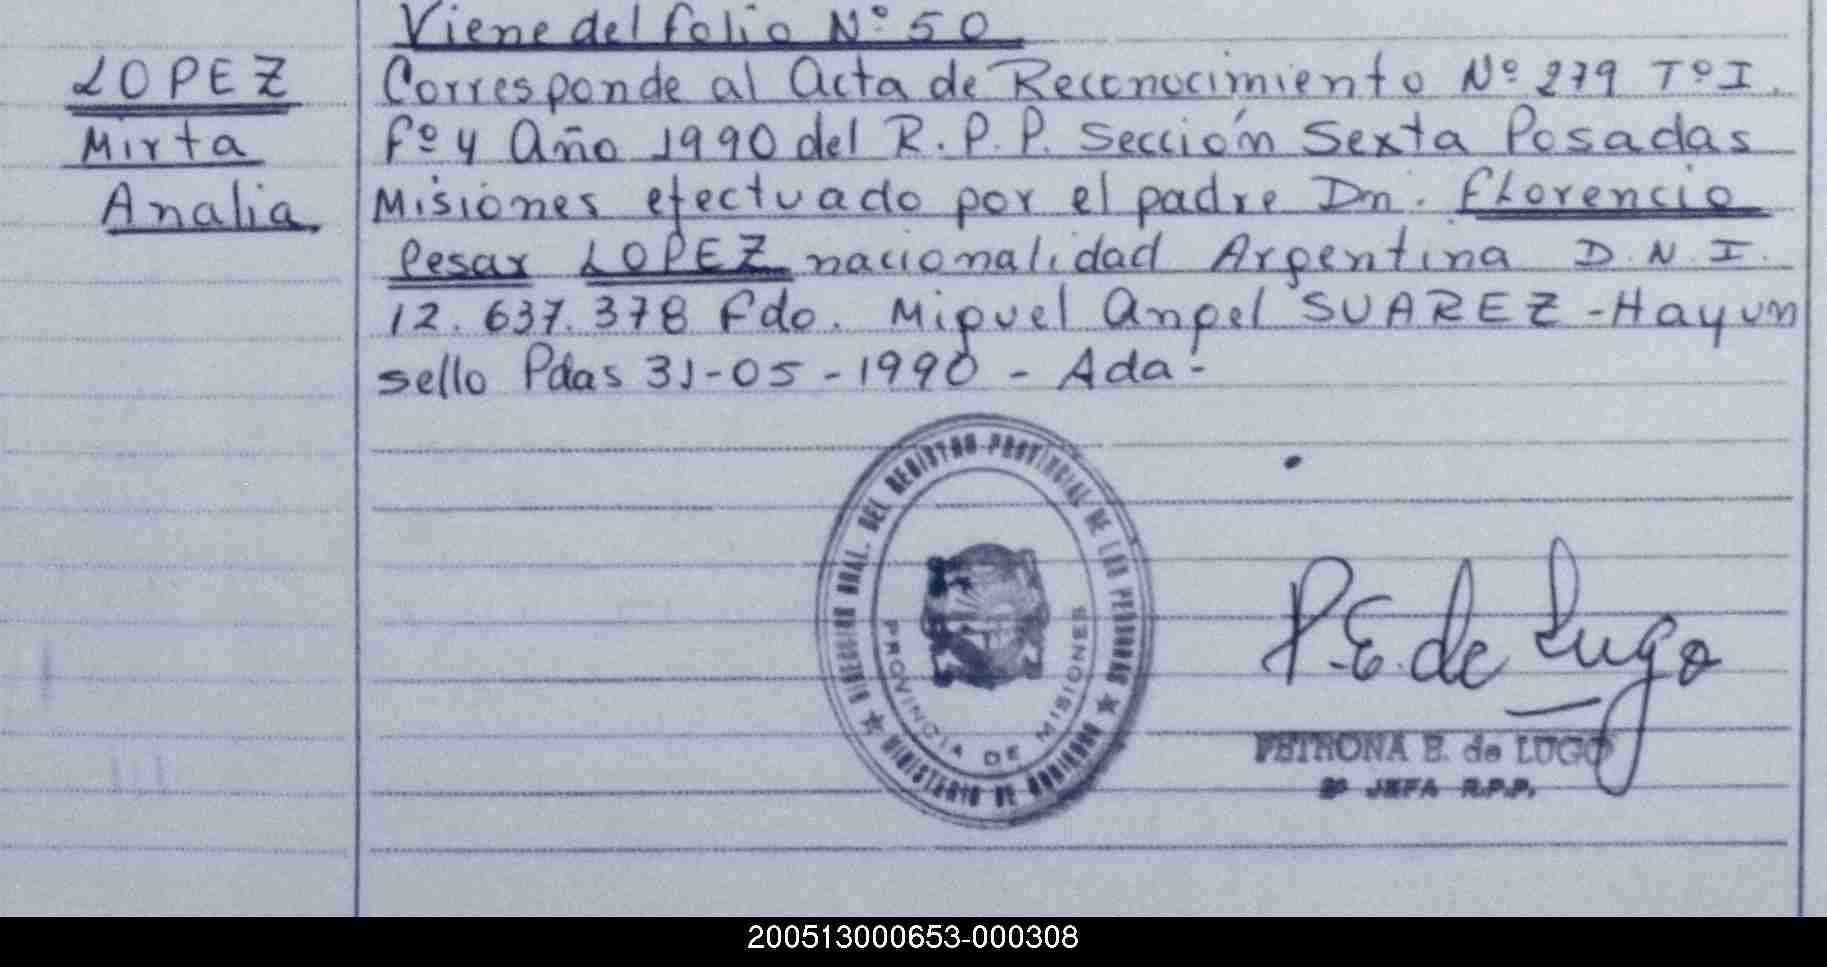 Viene del folio Nº 50
LOPEZ
Mirta
Analia
Corresponde al Acta de Reconocimiento Nº 279 Tº I.
Fº 4 Año 1990 del R.P.P. Sección Sexta Posadas
Misiones efectuado por el padre Dn. Florencio
Cesar LOPEZ nacionalidad Argentina D.N.I.
12.637.378 Fdo. Miguel Angel SUAREZ - Hay un
sello Pdas 31-05-1990 - Ada -
DIRECCION GRAL. DEL REGISTRO PROVINCIAL DE LAS PERSONAS
MINISTERIO DE GOBIERNO
PROVINCIA DE MISIONES
P.E. de Lugo
PETRONA E. de LUGO
2º JEFA R.P.P.
200513000653-000308